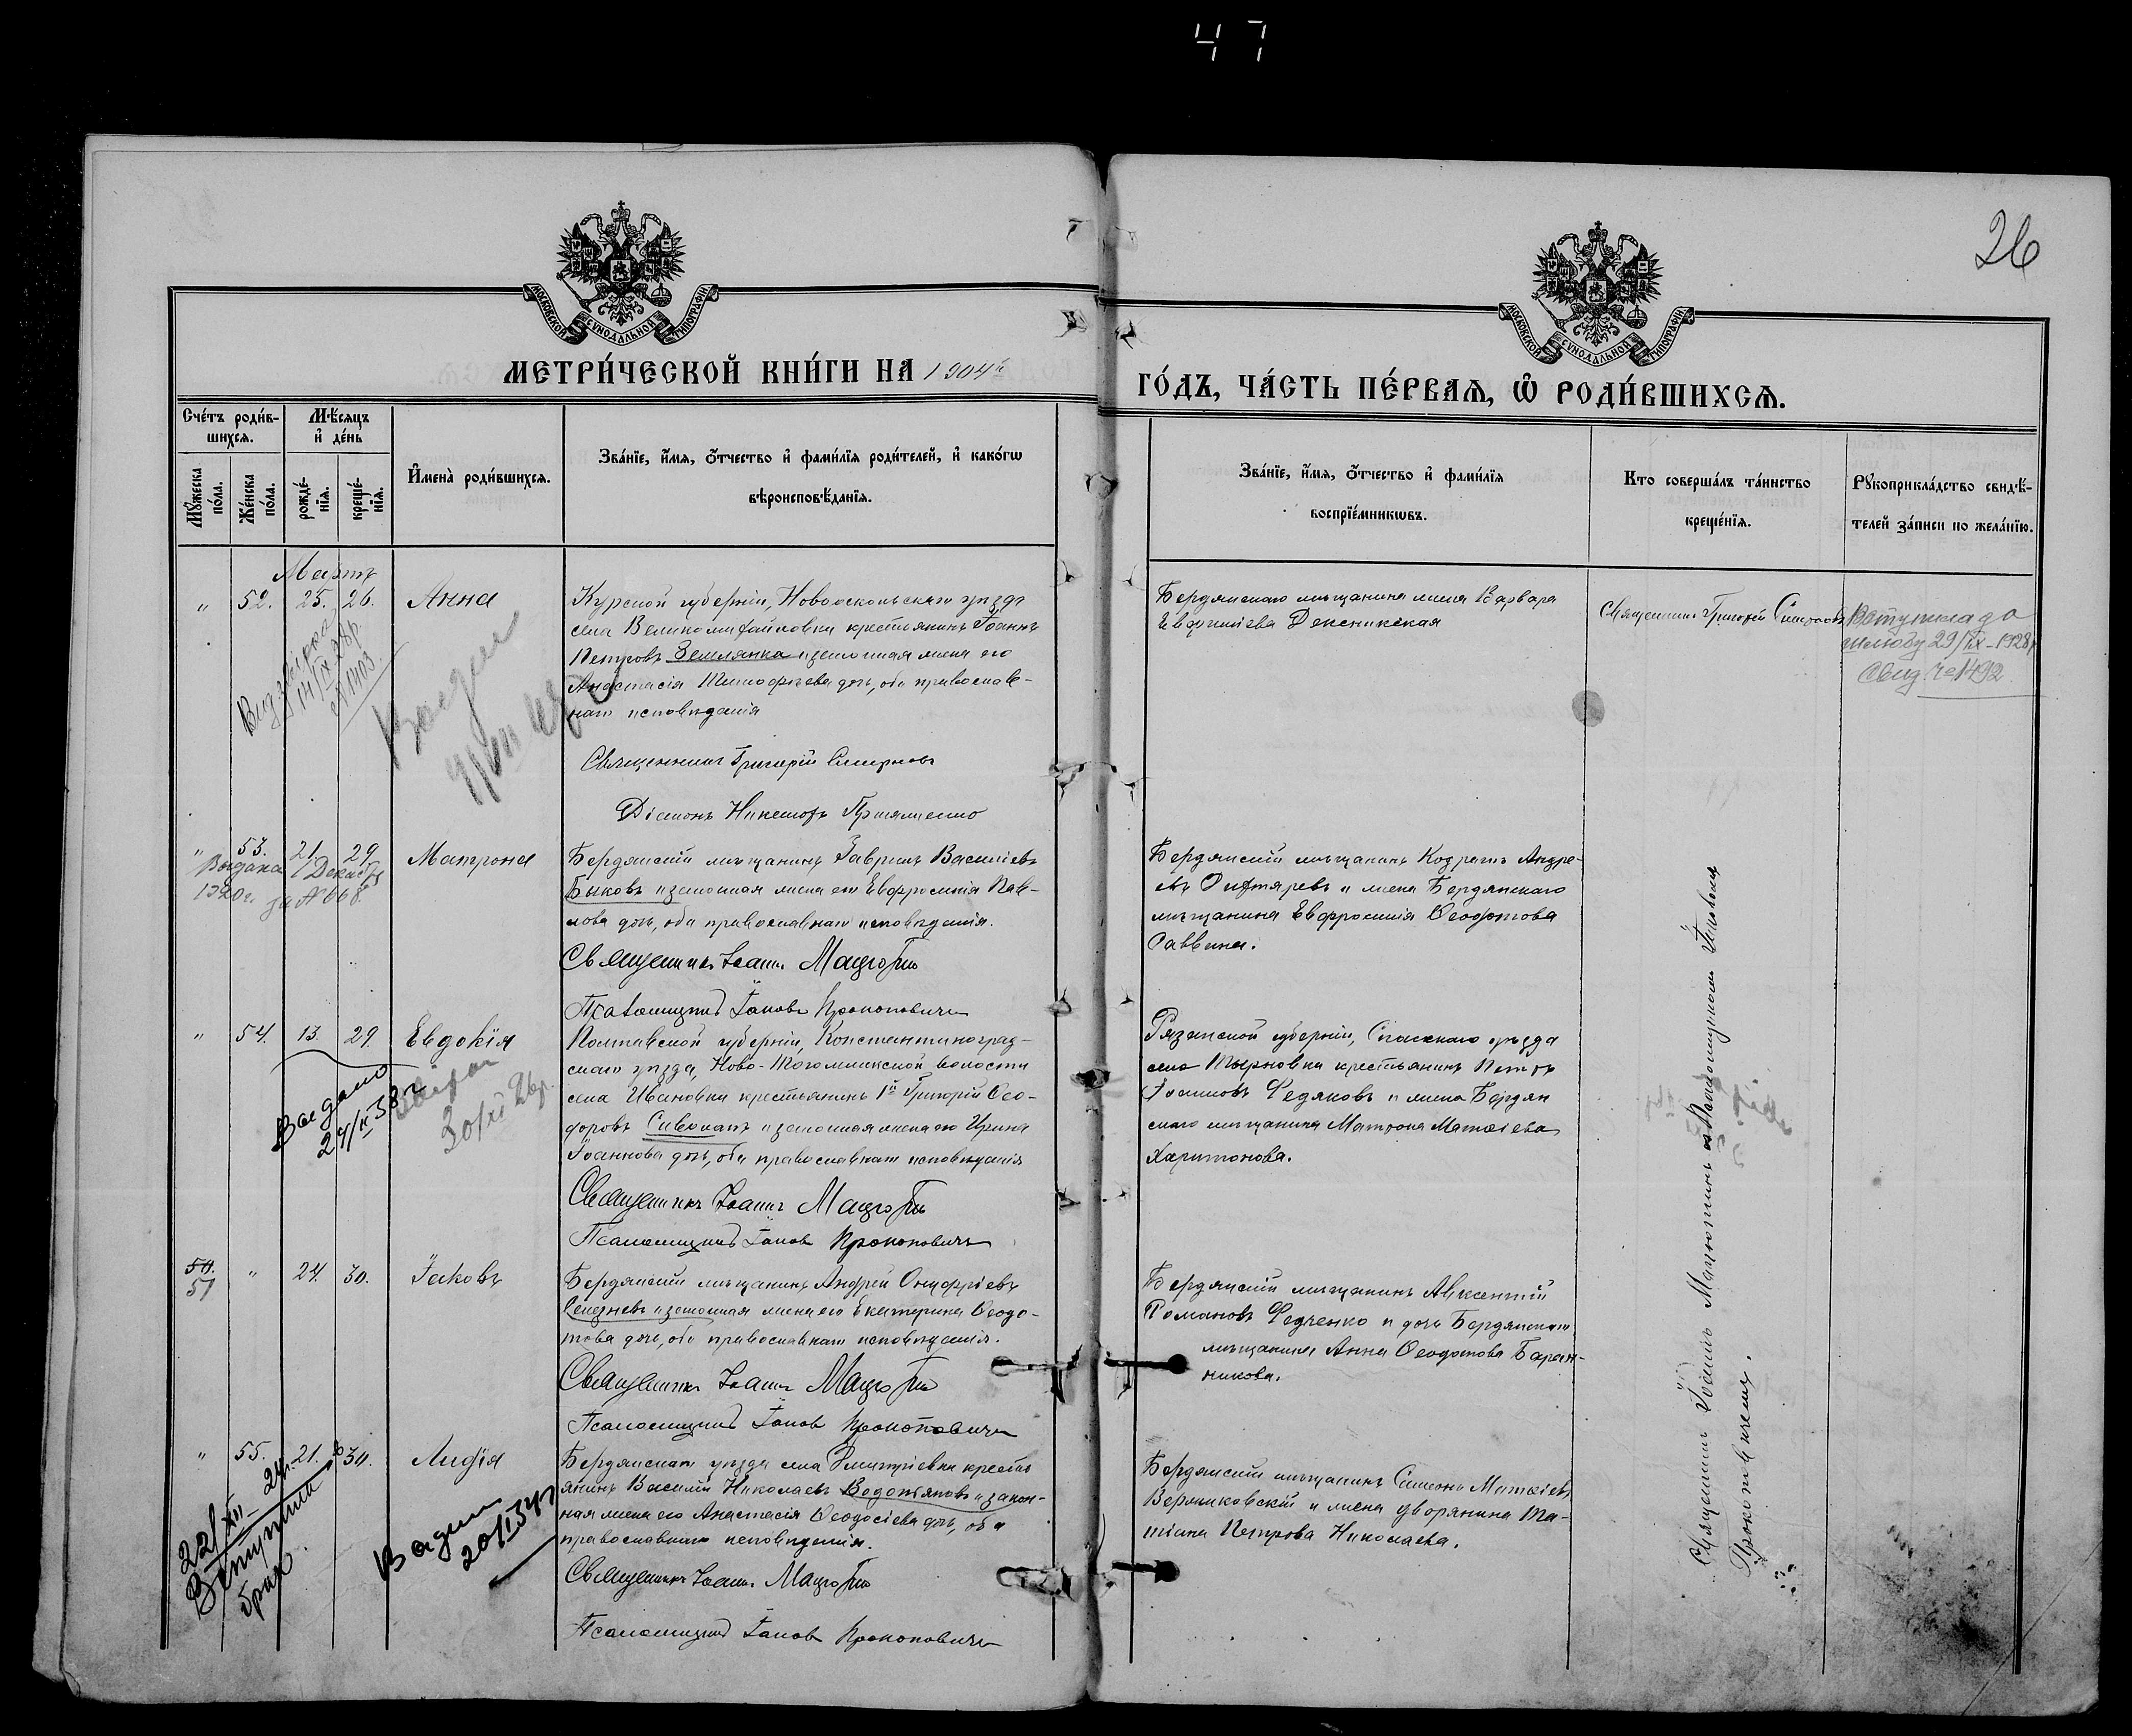 47
26
МОСКОВСКОЙ СѴНОДАЛЬНОЙ ТИПОГРАФІИ
МОСКОВСКОЙ СѴНОДАЛЬНОЙ ТИПОГРАФІИ
МЕТРИ́ЧЕСКОЙ КНИ́ГИ НА 1904й
ГО́ДЪ, ЧА́СТЬ ПЕ́РВАѦ, Ѡ҆ РОДИ́ВШИХСѦ.
Сче́тъ роди́в-
шихсѧ.
Мꙋ́жеска по́ла.
Же́нска по́ла.
Мѣ́сѧцъ
и҆ де́нь
рожде́-
нїѧ.
креще́-
нїѧ.
И҆мена̀ роди́вшихсѧ.
Зва́нїе, и҆́мѧ, ѻ҆́тчество и҆ фами́лїѧ роди́телей, и҆ како́гѡ
вѣроисповѣ́данїѧ.
Зва́нїе, и҆́мѧ, ѻ҆́тчество и҆ фами́лїѧ
воспрїе́мникѡвъ.
Кто соверша́лъ та́инство
креще́нїѧ.
Рꙋкоприкла́дство свидѣ́-
телей за́писи по жела́нїю.
Мартъ
" 52. 25. 26. Анна
Курской губерніи, Новооскольскаго уѣзда
села Великомихайловки крестьянинъ Іоаннъ
Петровъ Землянка и законная жена его
Анастасія Тимофеева дочь, оба православ-
наго исповѣданія
Священникъ Григорій Смирновъ
Діаконъ
Бердянскаго мѣщанина жена Варвара
Священникъ Григорій Смирновъ
Вступила до
шлюбу 29/IX-1928р
Свид. № 1492
14/IX 28р.
№ 1403
" 53. 21. 29. Матрона
Выдана 1 Декабр
1920г. за № 668
Бердянскій мѣщанинъ Гавріилъ Василіевъ
Быковъ и законная жена его Евфросинія Пав-
лова дочь, оба православнаго исповѣданія.
Священникъ Іоаннъ
Псаломщикъ Іаковъ Прокоповичъ
Бердянскій мѣщанинъ Кодратъ Андре-
евъ Дихтяревъ и жена Бердянскаго
мѣщанина Евфросинія Ѳеодотова
Саввина.
" 54. 13. 29. Евдокія
Выдано
24/II 38г
Полтавской губерніи, Константиноград-
скаго уѣзда, Ново- волости
села Ивановки крестьянинъ Григорій Ѳео-
доровъ Сивоконь и законная жена его Ирина
Іоаннова дочь, оба православнаго исповѣданія
Священникъ Іоаннъ
Псаломщикъ Іаковъ Прокоповичъ
Рязанской губерніи, Спасскаго уѣзда
села Тырновки крестьянинъ Петръ
Іоанновъ Федяковъ и жена Бердян
скаго мѣщанина Матрона Матѳіева
Харитонова.
50.
51 " 24. 30. Іаковъ
Бердянскій мѣщанинъ Андрей Онуфріевъ
Селезневъ и законная жена его Екатерина Ѳеодо-
това дочь, оба православнаго исповѣданія.
Священникъ Іоаннъ
Псаломщикъ Іаковъ Прокоповичъ
Бердянскій мѣщанинъ Авксентій
Романовъ Федченко и дочь Бердянскаго
мѣщанина Анна Ѳеодотова Баран-
никова.
" 55. 21. 30. Лидія
Бердянскаго уѣзда села Дмитріевки кресть
янинъ Василій Николаевъ Водотяповъ и закон-
ная жена его Анастасія Ѳеодосіева дочь, оба
православнаго исповѣданія.
Священникъ Іоаннъ
Псаломщикъ Іаковъ Прокоповичъ
Бердянскій мѣщанинъ Симеонъ Матѳіевъ
Верниковскій и жена дворянина Та-
тіана Петрова Николаева.
Священникъ Іоаннъ съ Псаломщикомъ Іаковомъ
Прокоповичемъ.